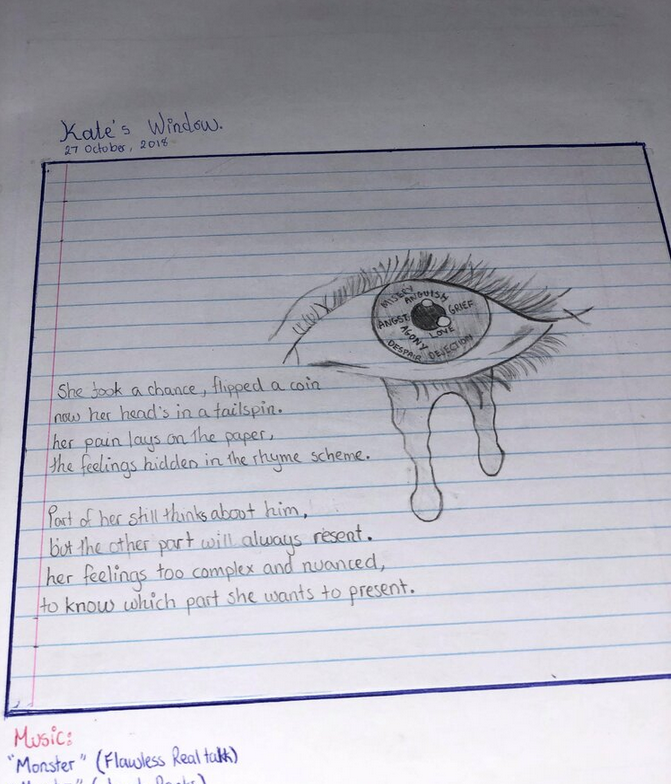 Kate's Window.
27 October, 2018
MISERY
ANGUISH
ANGST
GRIEF
AGONY
LOVE
DESPAIR
DEJECTION
She took a chance, flipped a coin
now her head's in a tailspin.
her pain lays on the paper,
the feelings hidden in the rhyme scheme.
Part of her still thinks about him,
but the other part will always resent.
her feelings too complex and nuanced,
to know which part she wants to present.
Music:
"Monster" (Flawless Real talk)